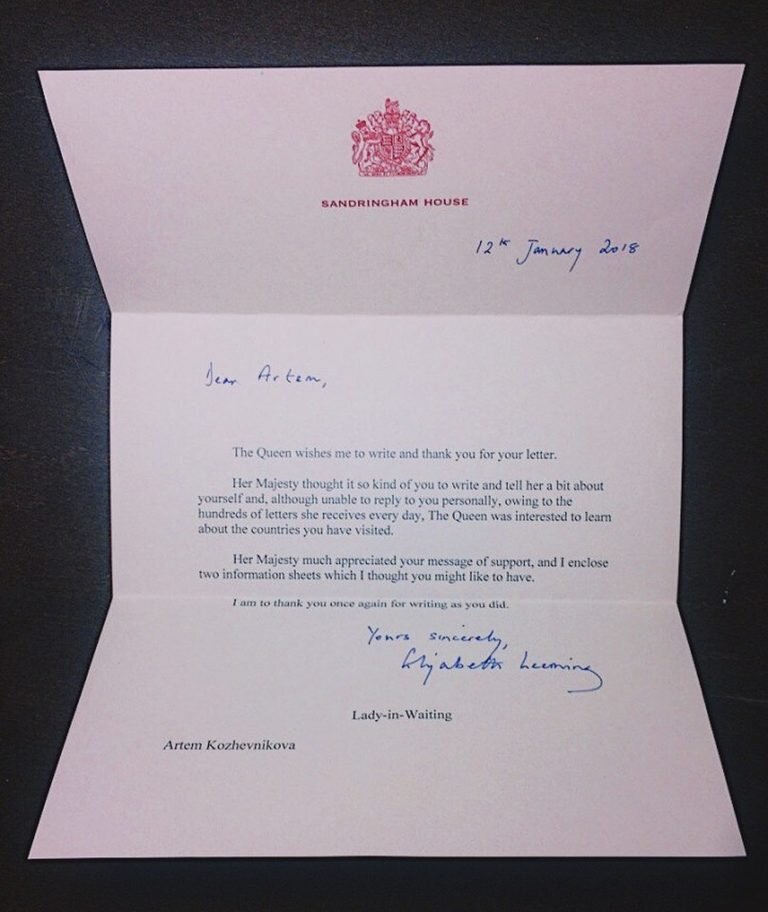 SANDRINGHAM HOUSE
12th January 2018
Dear Artem,
The Queen wishes me to write and thank you for your letter.
Her Majesty thought it so kind of you to write and tell her a bit about
yourself and, although unable to reply to you personally, owing to the
hundreds of letters she receives every day, The Queen was interested to learn
about the countries you have visited.
Her Majesty much appreciated your message of support, and I enclose
two information sheets which I thought you might like to have.
I am to thank you once again for writing as you did.
Yours sincerely,
Elizabeth Leeming
Lady-in-Waiting
Artem Kozhevnikova